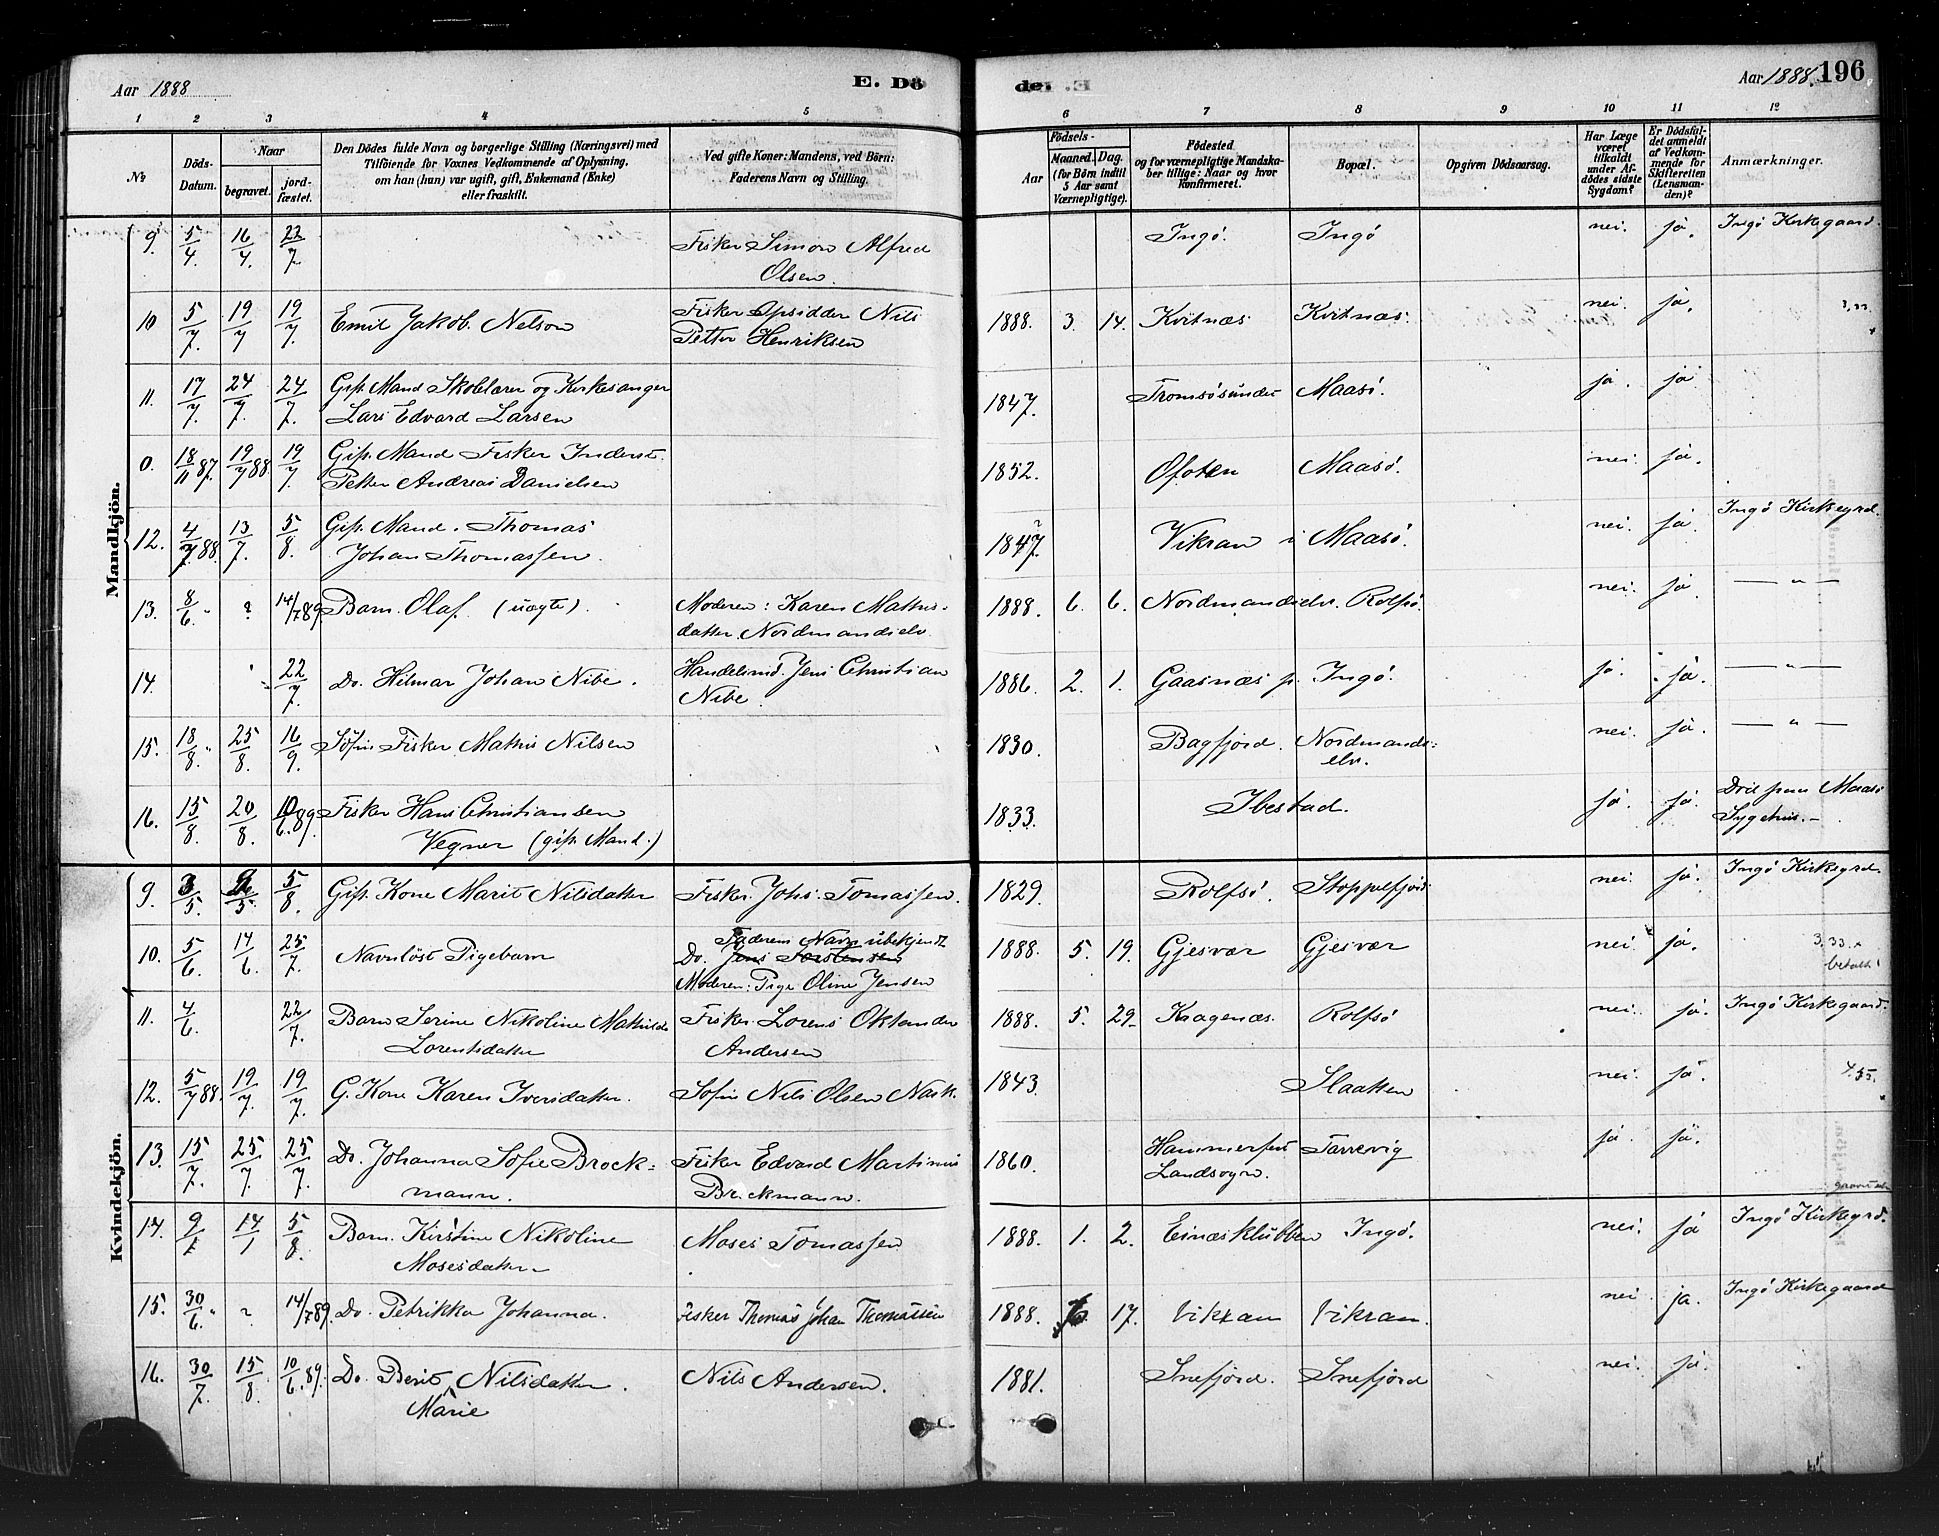 Aar 1888
E. Dö
der. E.
Aar 1888. 196
1 2 3 4 5 6 7 8 9 10 11 12
No
Döds-Datum.
Naar
begravet.
jordfæstet.
Den Dödes fulde Navn og borgerlige Stilling (Næringsvei) med
Tilföiende for Voxnes Vedkommende af Oplysning,
om han (hun) var ugift, gift, Enkemand (Enke)
eller fraskilt.
Ved gifte Koner: Mandens, ved Börn:
Faderens Navn og Stilling.
Födsels-
Aar
Maaned. Dag.
(for Börn indtil
5 Aar samt
Værnepligtige).
Födested
og for værnepligtige Mandska-
ber tillige: Naar og hvor
konfirmeret.
Bopæl.
Opgiven Dödsaarsag.
Har Læge
været
tilkaldt
under Af-
dödes sidste
Sygdom?
Er Dödsfal-
det anmeldt
af Vedkom-
mende for
Skifteretten
(Lensman-
den)?
Anmærkninger.
Mandkjön.
9. 5/4 16/4 22/7 Fisker Simon Alfred Ingö. Ingö nei. ja. Ingö Kirkegaard.
Olsen.
10 5/7 19/7 19/7 Emil Jakob Nelson Fisker Opsidder Nils 1888. 3. 14. Kvitnæs Kvitnæs. nei. ja. 3,33
Petter Henriksen
11. 17/7 24/7 24/7 Gift Mand Skolelærer og Kirkesanger 1847. Tromsösundet Maasö. ja. ja
Lars Edvard Larsen
0. 18/11 87. 19/7 88 19/7 Gift. Mand Fisker Inderst. 1852. Ofoten Maasö. nei. ja.
Petter Andreas Danielsen
12. 4/7 88. 13/7 5/8 Gift. Mand. Thomas 1847. Vikran i Maasö. nei. ja. Ingö Kirkegrd.
Johan Thomassen.
13. 8/6 " ? 14/7 89 Barn. Olaf. (uægte). Moderen: Karen Mathis- 1888. 6. 6. Nordmandselv. Rolfsö. nei. ja. — " —
datter Nordmandselv.
14. 22/7 Do. Hilmar Johan Nibe. Handelsmd. Jens Christian 1886. 2. 1. Gaasnæs p. Ingö. ja. ja. — " —
Nibe.
15. 18/8. " 25/8. 16/9. Söfin Fisker Mathis Nilsen 1830. Bagfjord. Nordmands= nei. ja. — " —
elv.
16. 15/8. 20/8. 10/6. 89. Fisker Hans Christiansen 1833. Ibestad. ja. ja. Död paa Maasö
Vegner (gift. Mand.) Sygehus. —
Kvindekjön.
9. 3/5. 9/5. 5/8. Gift. Kone Marit Nilsdatter Fisker Johs. Tomassen. 1829. Rolfsö. Stoppelfjord. nei. ja. Ingö Kirkegrd.
10. 5/6 14/6. 25/7. Navnlöst Pigebarn Faderens Navn ubekjendt 1888. 5. 19. Gjesvær Gjesvær nei. ja. 3,33.
Do. Jens Torstensen betalt!
Moderen: Pige Oline Jensen
11. 4/6 22/7. Barn Serine Nikoline Mathilde Fisker Lorens Oktander 1888. 5. 29. Kragenæs. Rolfsö nei. ja. Ingö Kirkegaard.
Lorentsdatter Andersen
12. 5/7 88. 19/7. 19/7. G. Kone Karen Iversdatter. Söfin Nils Olsen Nask. 1843. Slaatten nei. ja.
13. 15/7. 25/7. 25/7. Do. Johanna Sofie Brock= Fisker Edvard Martinus 1860. Hammerfest Tarrevig ja. ja.
mann. Brockmann. Landsogn.
14. 9/1 14/1 5/8. Barn. Kirstine Nikoline Moses Tomassen 1888. 1. 2. Einæsklubben Ingö. nei. ja Ingö Kirkegrd.
Mosesdatter
15. 30/6. " ? 14/7 89. Do. Petrikka Johanna. Fisker Thomas Johan Thomassen 1888. 6. 17. Vikran Vikran. nei ja. Ingö Kirkegaard
16. 30/7. 15/8. 10/6. 89. Do. Berit Nilsdatter. Nils Andersen. 1881. Snefjord. Snefjord nei. ja.
Marie